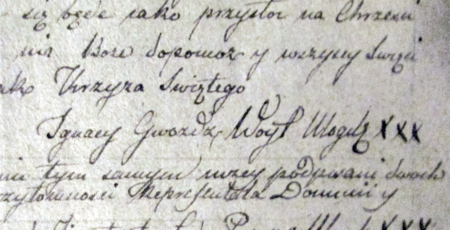 się będę jako przystoi na Chrześci
nia Boże dopomoż y wszyscy Święci
ako Krzyża Świętego
Ignacy Gwozdz Woyt Mogul XXX
nie tym samym podpisani dwoch
rzytomnosci Reprezentata Dominii y
XXX